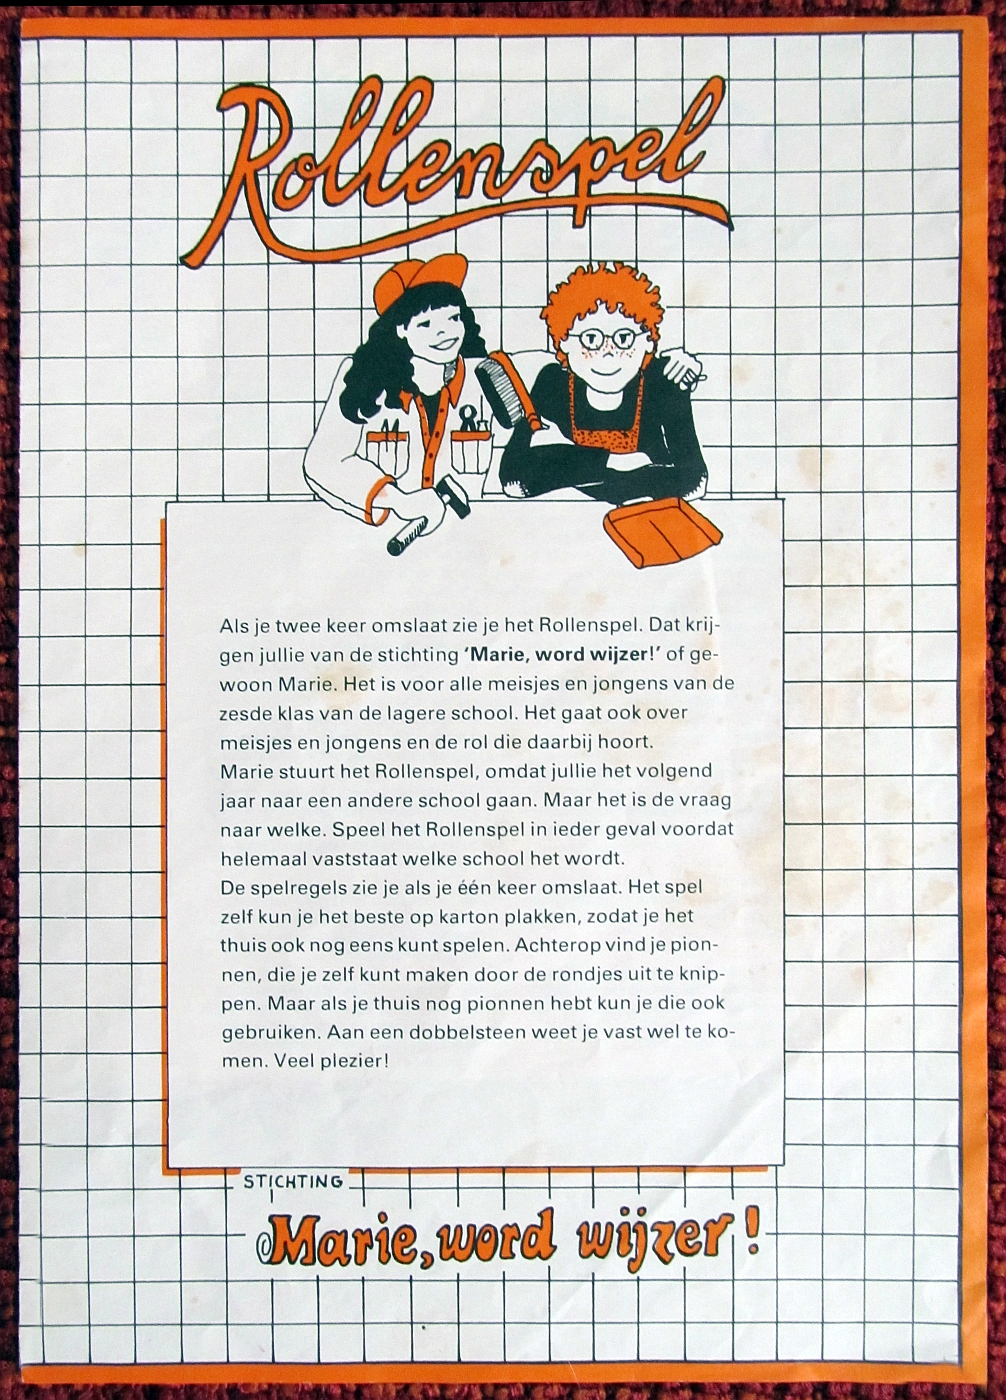 Rollenspel
Als je twee keer omslaat zie je het Rollenspel. Dat krij-
gen jullie van de stichting ‘Marie, word wijzer!’ of ge-
woon Marie. Het is voor alle meisjes en jongens van de
zesde klas van de lagere school. Het gaat ook over
meisjes en jongens en de rol die daarbij hoort.
Marie stuurt het Rollenspel, omdat jullie het volgend
jaar naar een andere school gaan. Maar het is de vraag
naar welke. Speel het Rollenspel in ieder geval voordat
helemaal vaststaat welke school het wordt.
De spelregels zie je als je één keer omslaat. Het spel
zelf kun je het beste op karton plakken, zodat je het
thuis ook nog eens kunt spelen. Achterop vind je pion-
nen, die je zelf kunt maken door de rondjes uit te knip-
pen. Maar als je thuis nog pionnen hebt kun je die ook
gebruiken. Aan een dobbelsteen weet je vast wel te ko-
men. Veel plezier!
STICHTING
Marie, word wijzer!